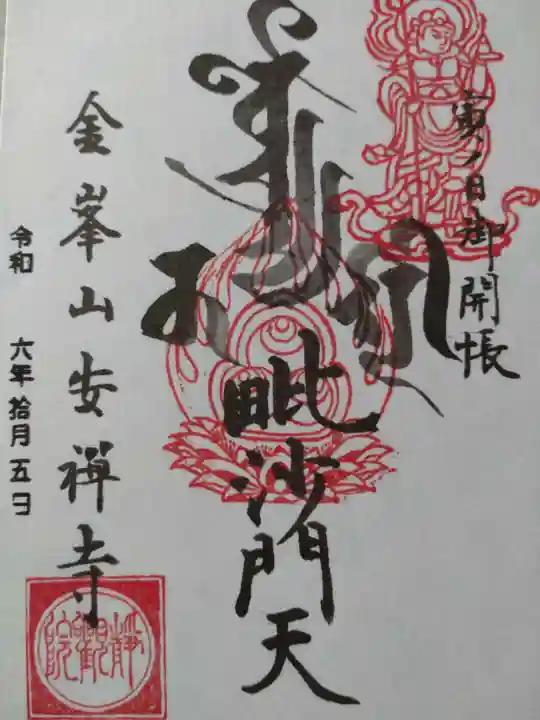 寅ノ日御開帳
毘沙門天
金峯山安禅寺
令和 六年拾月五日
静観院